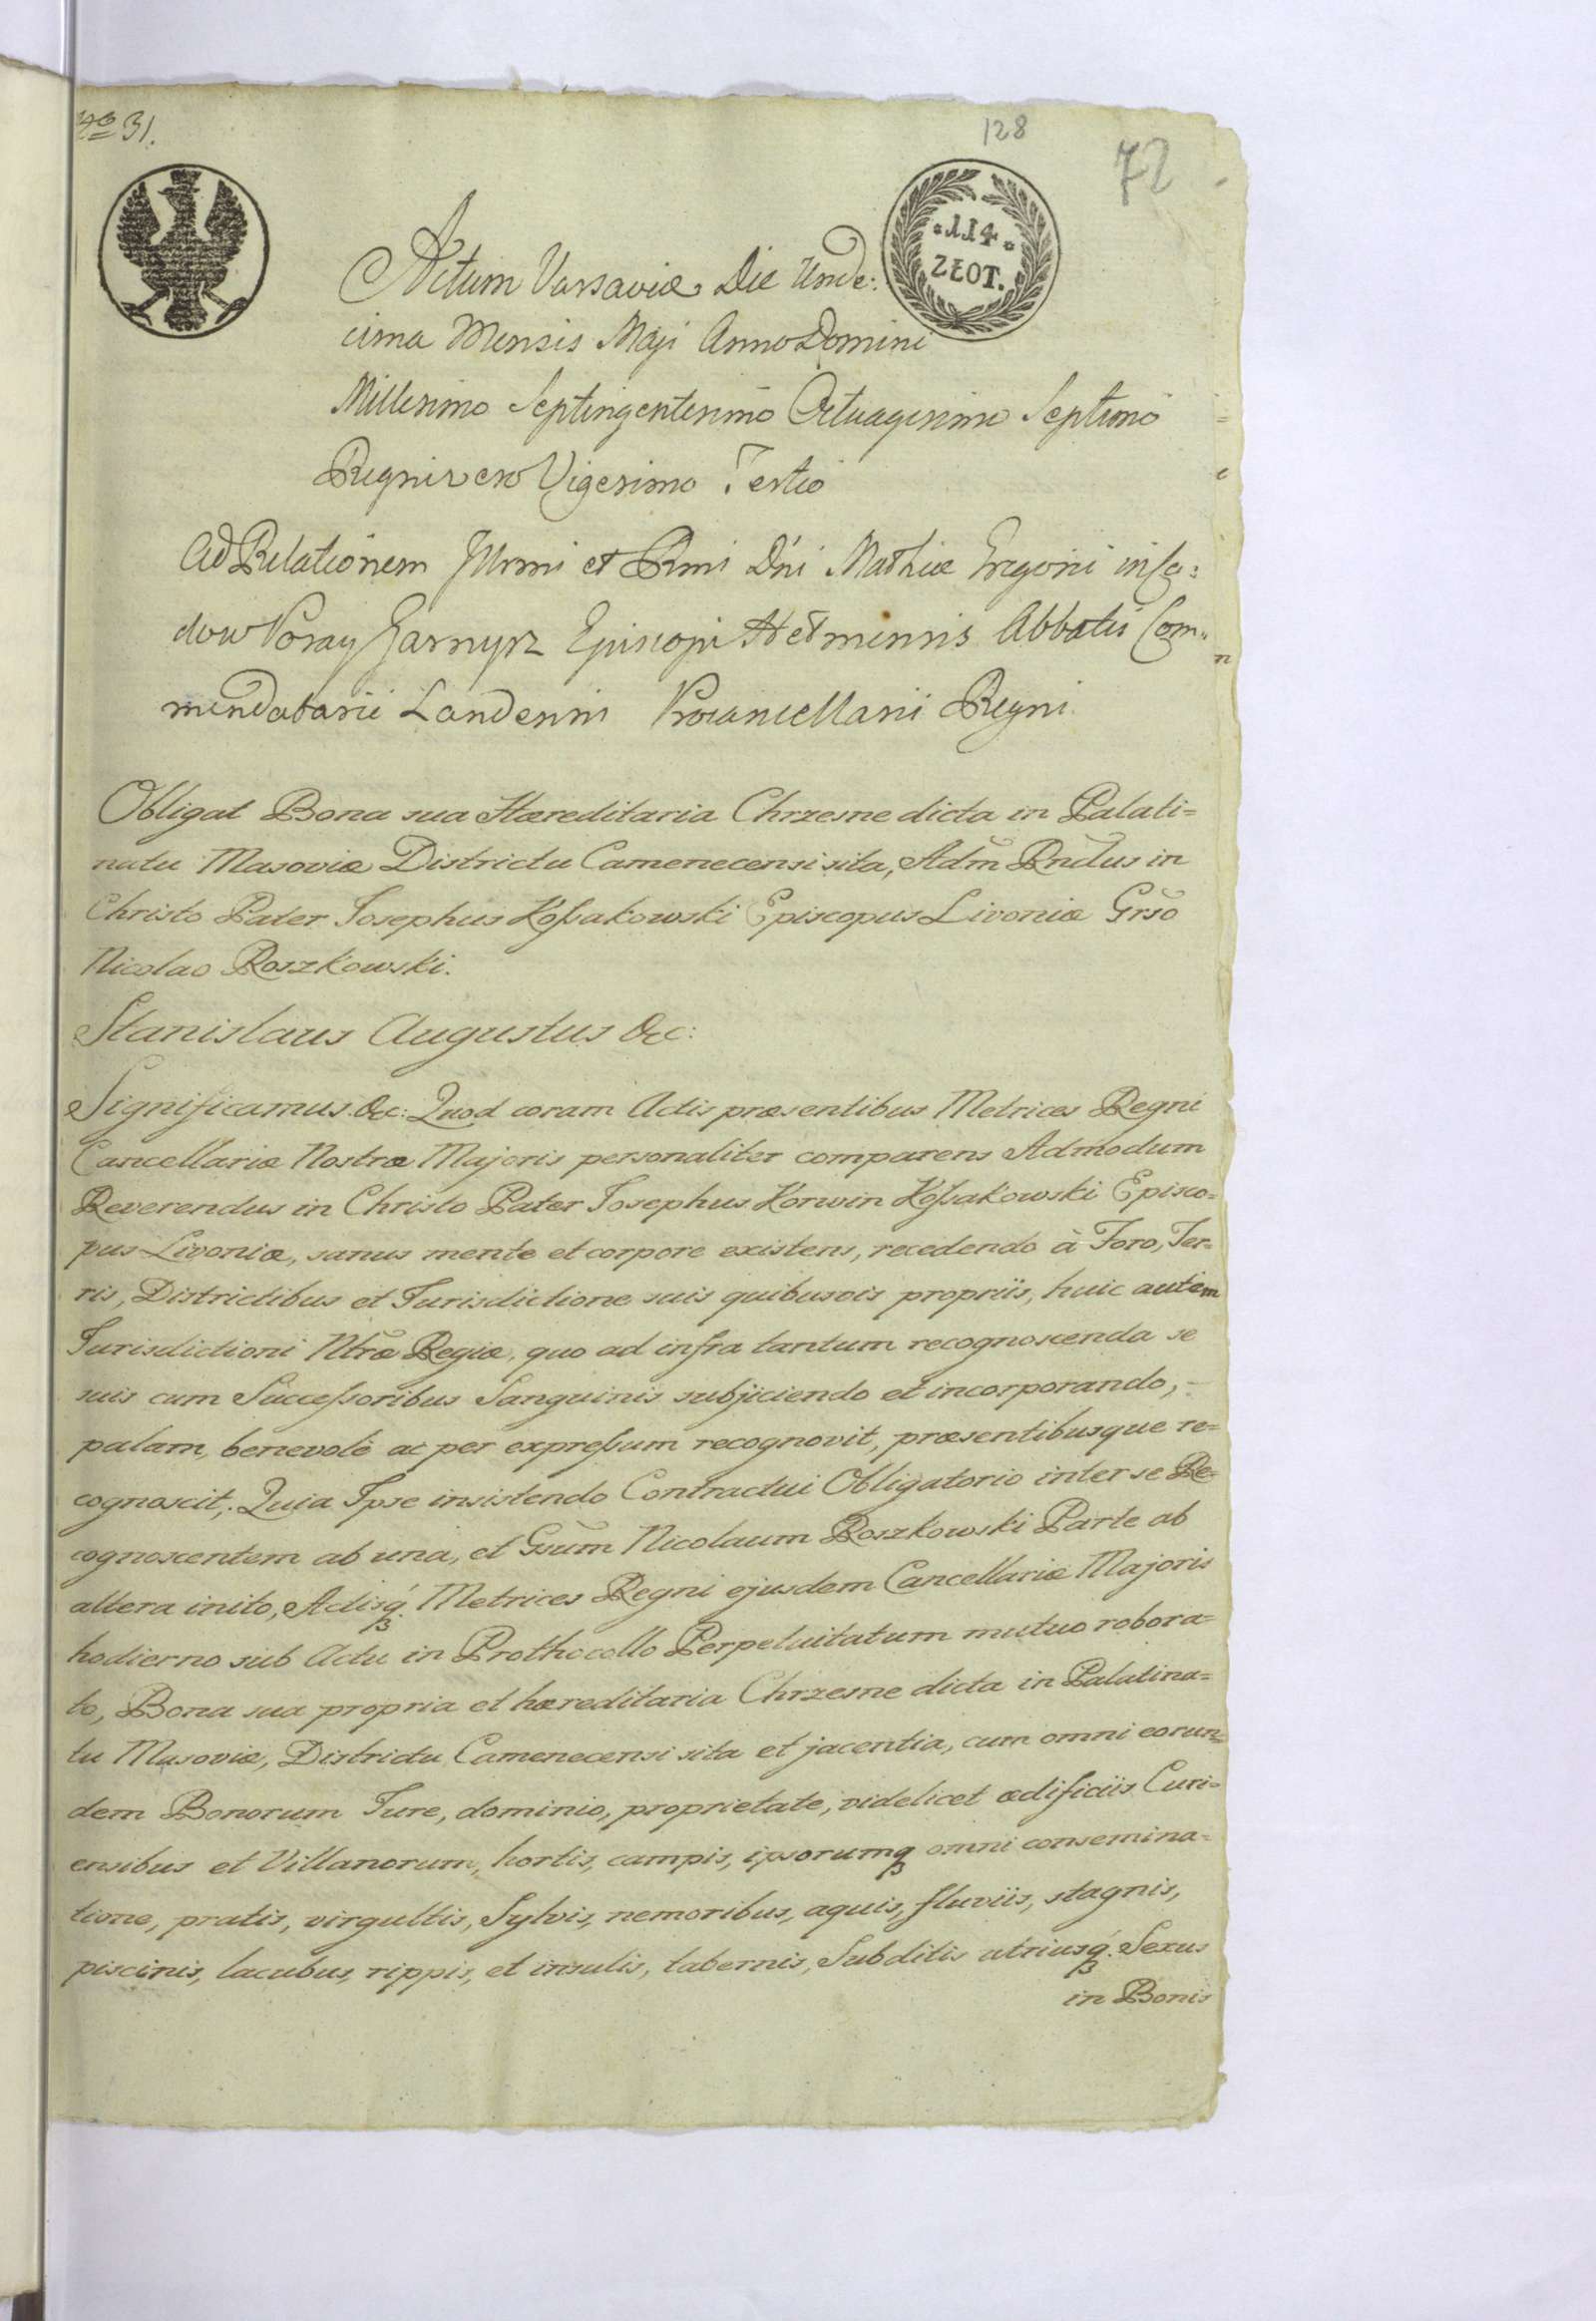 No 31.
128
72
114
ZŁOT.
Actum Varsaviæ Die Unde:
cima Mensis Maji Anno Domini
Millesimo Septingentesimo Octuagesimo Septimo
Regni vero Vigesimo Tertio
Ad Relationem Illrmi et Rmi Dni Mathiæ
dow Poray Garnysz Episcopi Abbatis Com=
mendatarii Landensis Procancellarii Regni.
Obligat Bona sua Hæreditaria Chrzesne dicta in Palati=
natu Masoviæ Districtu Camenecensi sita, Adm Rndus in
Christo Pater Josephus Kossakowski Episcopus Livoniæ Grso
Nicolao Roszkowski.
Stanislaus Augustus &c:
Significamus &c: Quod coram Actis præsentibus Metrices Regni
Cancellariæ Nostræ Majoris personaliter comparens Admodum
Reverendus in Christo Pater Josephus Korwin Kossakowski Episco=
pus Livoniæ, sanus mente et corpore existens, recedendo à Foro, Ter=
ris, Districtibus et Jurisdictione suis quibusvis propriis, huic autem
Jurisdictioni Ntræ Regiæ, quo ad infra tantum recognoscenda se
suis cum Successoribus Sanguinis subjiciendo et incorporando, -
palam, benevolè ac per expressum recognovit, præsentibusque re=
cognoscit; Quia Ipse insistendo Contractui Obligatorio inter se Re=
cognoscentem ab una, et Gsum Nicolaum Roszkowski Parte ab
altera inito, Actisq Metrices Regni ejusdem Cancellariæ Majoris
hodierno sub Actu in Prothocollo Perpetuitatum mutuo robora=
to, Bona sua propria et hæreditaria Chrzesne dicta in Palatina=
tu Masoviæ, Districtu Camenecensi sita et jacentia, cum omni eorun=
dem Bonorum Jure, dominio, proprietate, videlicet ædificiis Curi=
ensibus et Villanorum, hortis, campis, ipsorumq omni consemina=
tione, pratis, virgultis, Sylvis, nemoribus, aquis, fluviis, stagnis,
piscinis, lacubus, rippis, et insulis, tabernis, Subditis utriusq Sexus
in Bonis